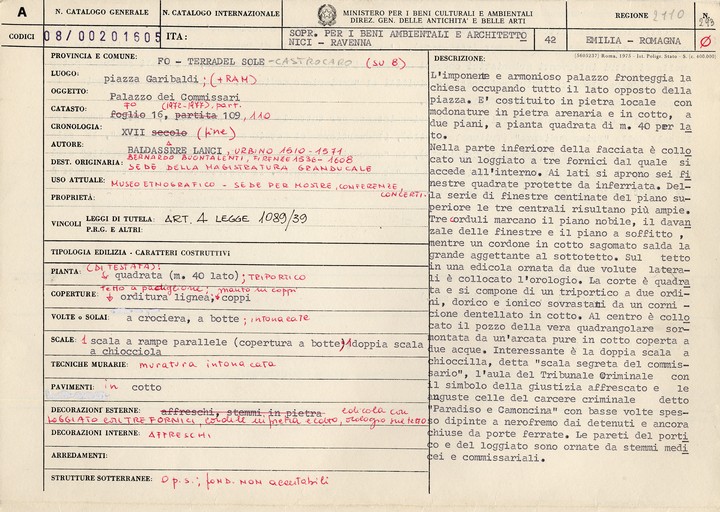 A
N. CATALOGO GENERALE
N. CATALOGO INTERNAZIONALE
MINISTERO PER I BENI CULTURALI E AMBIENTALI
DIREZ. GEN. DELLE ANTICHITA' E BELLE ARTI
REGIONE 2110
N.
CODICI
08/00201605
ITA:
SOPR. PER I BENI AMBIENTALI E ARCHITETTO
NICI - RAVENNA
42
EMILIA - ROMAGNA
PROVINCIA E COMUNE: FO - TERRADEL SOLE - CASTROCARO (SU 8)
LUOGO: piazza Garibaldi; (+RAM)
OGGETTO: Palazzo dei Commissari
70 (1972-1977), part.
CATASTO: foglio 16, partita 109, 110
CRONOLOGIA: XVII secolo (fine)
AUTORE: BALDASSRRE LANCI, URBINO 1510-1571
BERNARDO BUONTALENTI, FIRENZE 1536-1608
DEST. ORIGINARIA: SEDE DELLA MAGISTRATURA GRANDUCALE
USO ATTUALE: MUSEO ETNOGRAFICO - SEDE PER MOSTRE, CONFERENZE, CONCERTI.
PROPRIETÀ:
VINCOLI
LEGGI DI TUTELA: ART. 4 LEGGE 1089/39
P.R.G. E ALTRI:
TIPOLOGIA EDILIZIA - CARATTERI COSTRUTTIVI
(DI TESTATA):
PIANTA: quadrata (m. 40 lato); TRIPORTICO
tetto a padiglione; manto in coppi
COPERTURE: orditura lignea; coppi
VOLTE o SOLAI: a crociera, a botte; intonacate
SCALE: 1 scala a rampe parallele (copertura a botte) 1 doppia scala
a chiocciola
TECNICHE MURARIE: muratura intonacata
PAVIMENTI: in cotto
DECORAZIONI ESTERNE: affreschi, stemmi in pietra edicola con
LOGGIATO CON TRE FORNICI, cordoli in pietra e cotto, orologio sul tetto
DECORAZIONI INTERNE: AFFRESCHI
ARREDAMENTI:
STRUTTURE SOTTERRANEE: O p.s.; fond. NON accertabili
DESCRIZIONE:
(3605237) Roma, 1975 - Ist. Poligr. Stato - S. (c. 400.000)
L'imponente e armonioso palazzo fronteggia la
chiesa occupando tutto il lato opposto della
piazza. E' costituito in pietra locale con
modonature in pietra arenaria e in cotto, a
due piani, a pianta quadrata di m. 40 per la
to.
Nella parte inferiore della facciata è collo
cato un loggiato a tre fornici dal quale si
accede all'interno. Ai lati si aprono sei fi
nestre quadrate protette da inferriata. Del-
la serie di finestre centinate del piano su-
periore le tre centrali risultano più ampie.
Tre corduli marcano il piano nobile, il davan
zale delle finestre e il piano a soffitto,
mentre un cordone in cotto sagomato salda la
grande aggettante al sottotetto. Sul tetto
in una edicola ornata da due volute latera-
li è collocato l'orologio. La corte è quadra
ta e si compone di un triportico a due ordi-
ni, dorico e ionico sovrastani da un corni -
cione dentellato in cotto. Al centro è collo
cato il pozzo della vera quadrangolare sor-
montata da un'arcata pure in cotto coperta a
due acque. Interessante è la doppia scala a
chiocciila, detta "scala segreta del commis-
sario", l'aula del Tribunale Criminale con
il simbolo della giustizia affrescato e le
anguste celle del carcere criminale detto
"Paradiso e Camoncina" con basse volte spes-
so dipinte a nerofremo dai detenuti e ancora
chiuse da porte ferrate. Le pareti del porti
co e del loggiato sono ornate da stemmi medi
cei e commissariali.